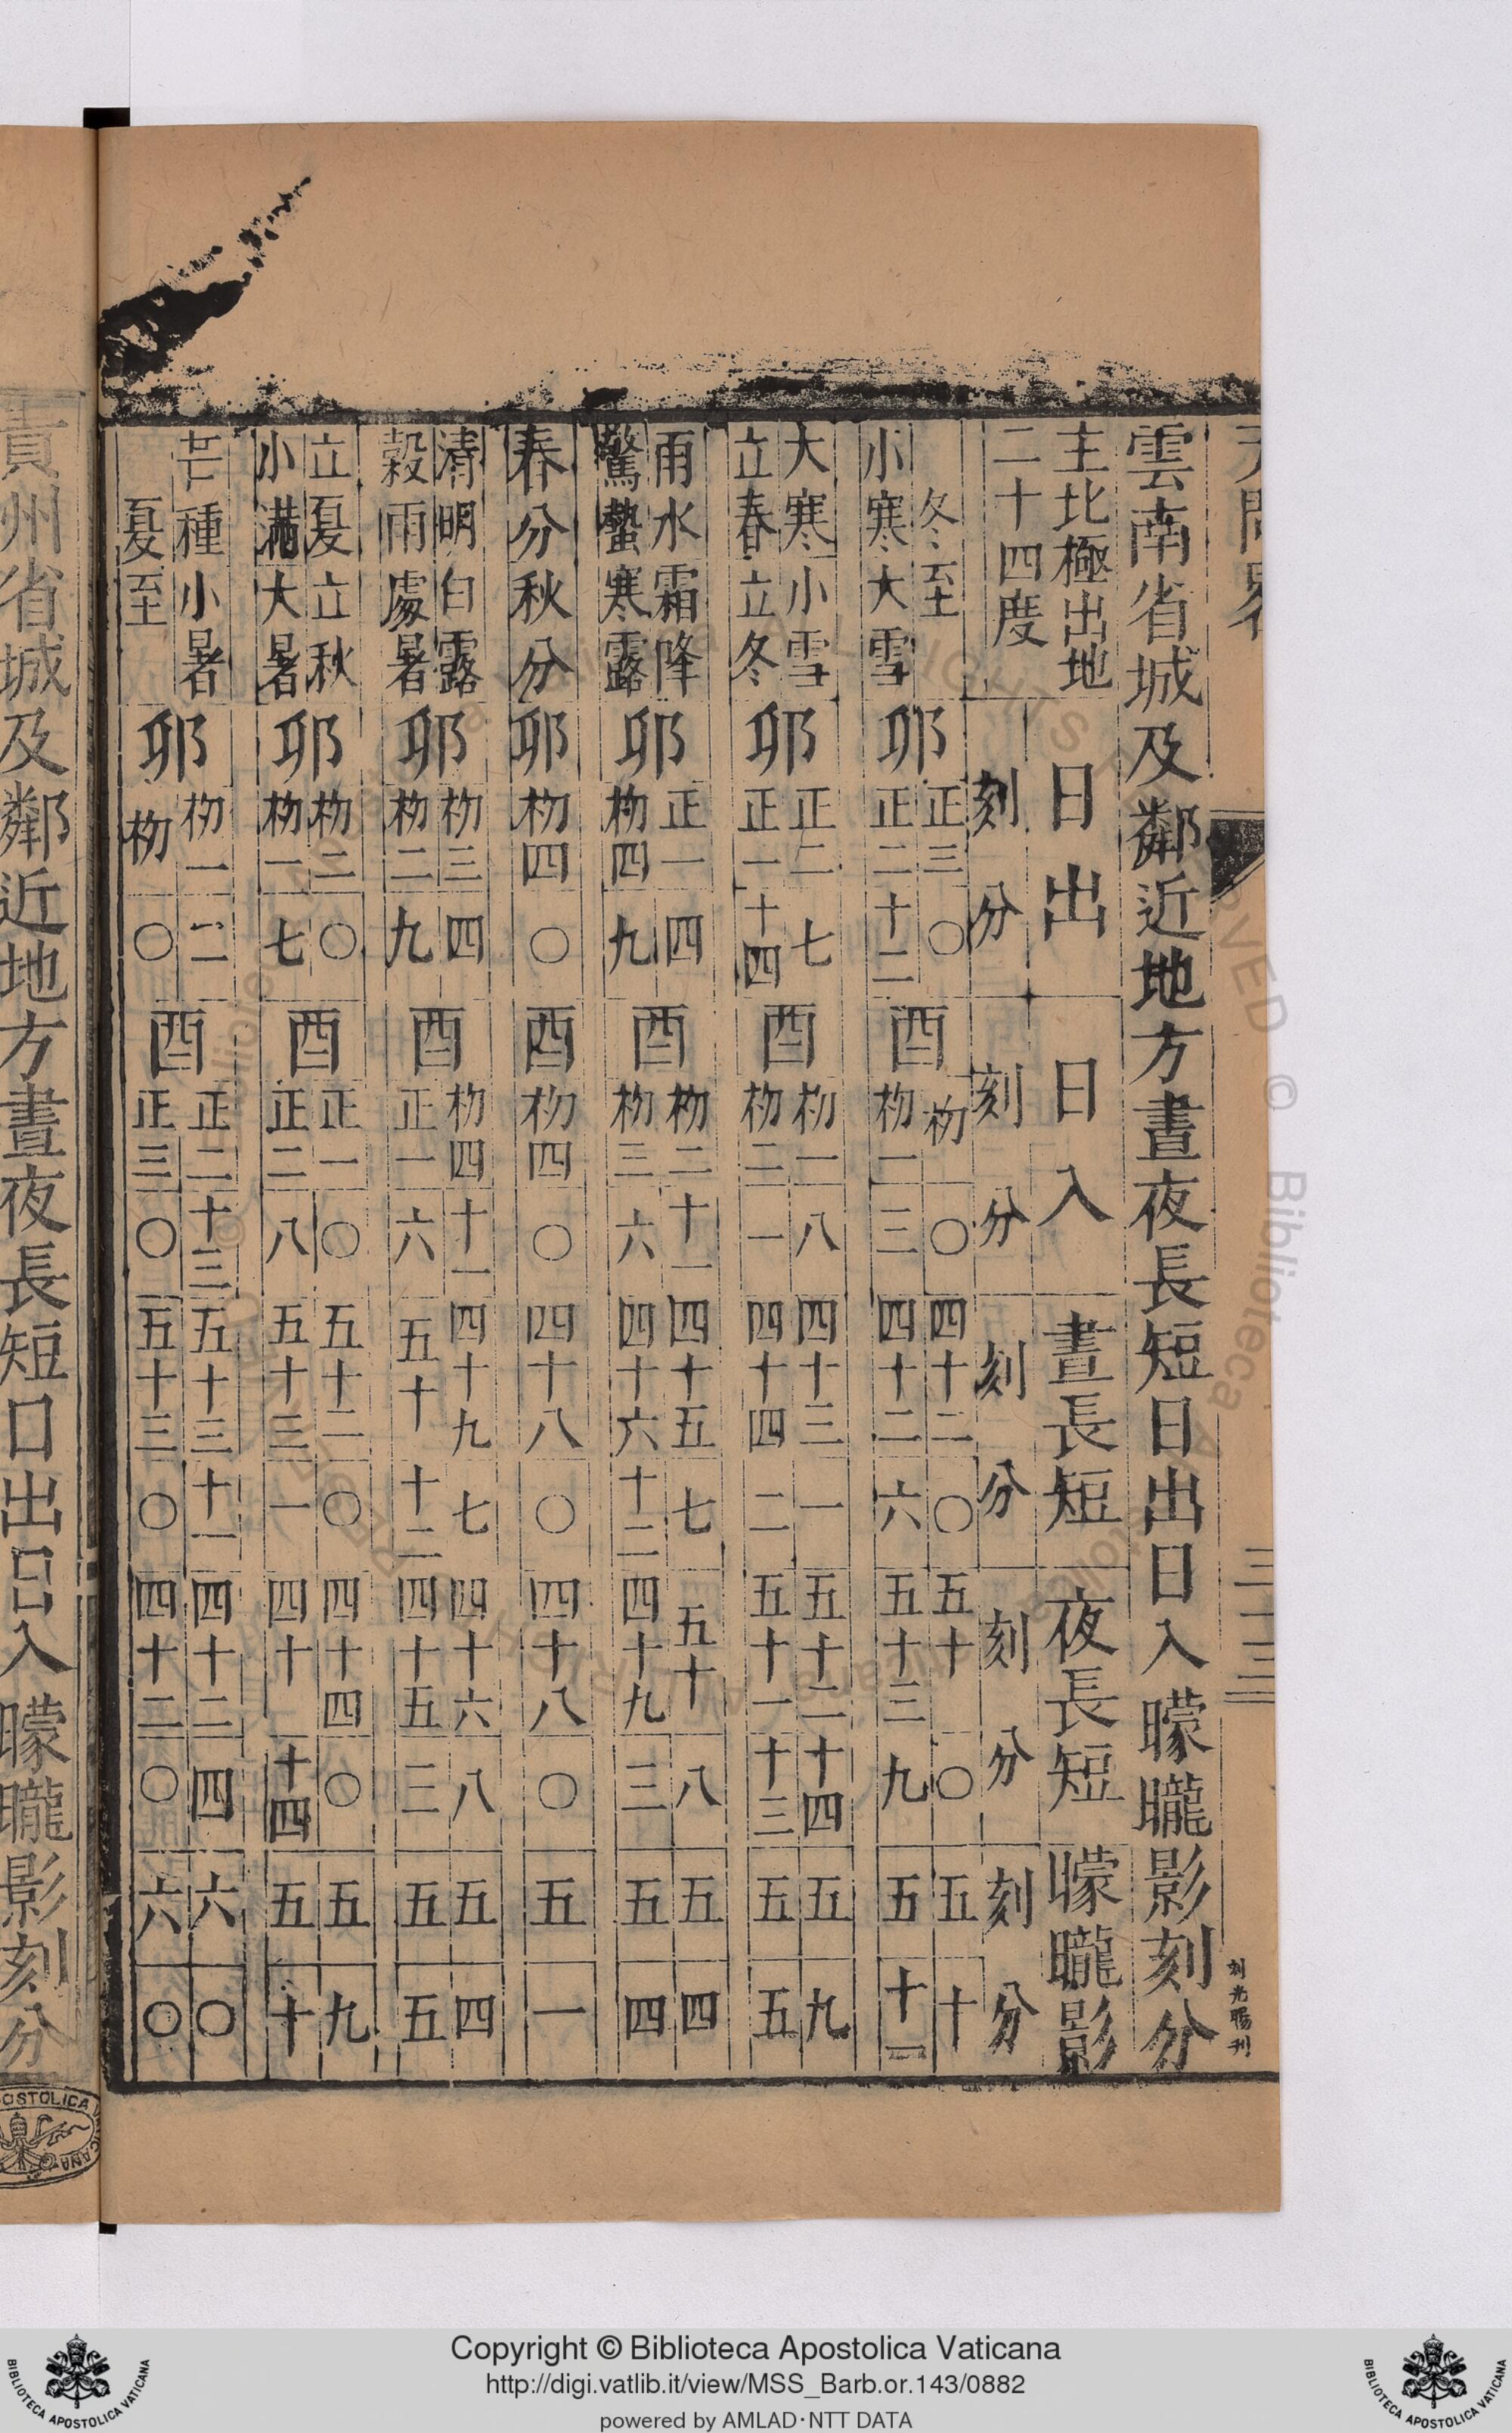 天問畧
三十三
刘光暘刊
雲南省城及鄰近地方晝夜長短日出日入曚曨影刻分
主北極出地
二十四度
日出 日入 晝長短 夜長短 曚曨影
刻 分 刻 分 刻 分 刻 分 刻 分
冬至 卯 正三 〇 酉 初 〇 四十二 〇 五十 〇 五 十
小寒 大雪 卯 正二 十二 酉 初一 三 四十二 六 五十三 九 五 十一
大寒 小雪 卯 正二 七 酉 初一 八 四十三 一 五十二 十四 五 九
立春 立冬 卯 正一 十四 酉 初二 一 四十四 二 五十一 十三 五 五
雨水 霜降 卯 正一 四 酉 初二 十一 四十五 七 五十 八 五 四
驚蟄 寒露 卯 初四 九 酉 初三 六 四十六 十二 四十九 三 五 四
春分 秋分 卯 初四 〇 酉 初四 〇 四十八 〇 四十八 〇 五 一
清明 白露 卯 初三 四 酉 初四 十一 四十九 七 四十六 八 五 四
穀雨 處暑 卯 初二 九 酉 正一 六 五十 十二 四十五 三 五 五
立夏 立秋 卯 初二 〇 酉 正一 〇 五十二 〇 四十四 〇 五 九
小滿 大暑 卯 初一 七 酉 正二 八 五十三 一 四十 十四 五 十
芒種 小暑 卯 初一 二 酉 正二 十三 五十三 十一 四十二 四 六 〇
夏至 卯 初 〇 酉 正三 〇 五十三 〇 四十二 〇 六 〇
貴州省城及鄰近地方晝夜長短日出日入曚曨影刻分
Copyright © Biblioteca Apostolica Vaticana
http://digi.vatlib.it/view/MSS_Barb.or.143/0882
powered by AMLAD·NTT DATA
BIBLIOTECA APOSTOLICA VATICANA
BIBLIOTECA APOSTOLICA VATICANA